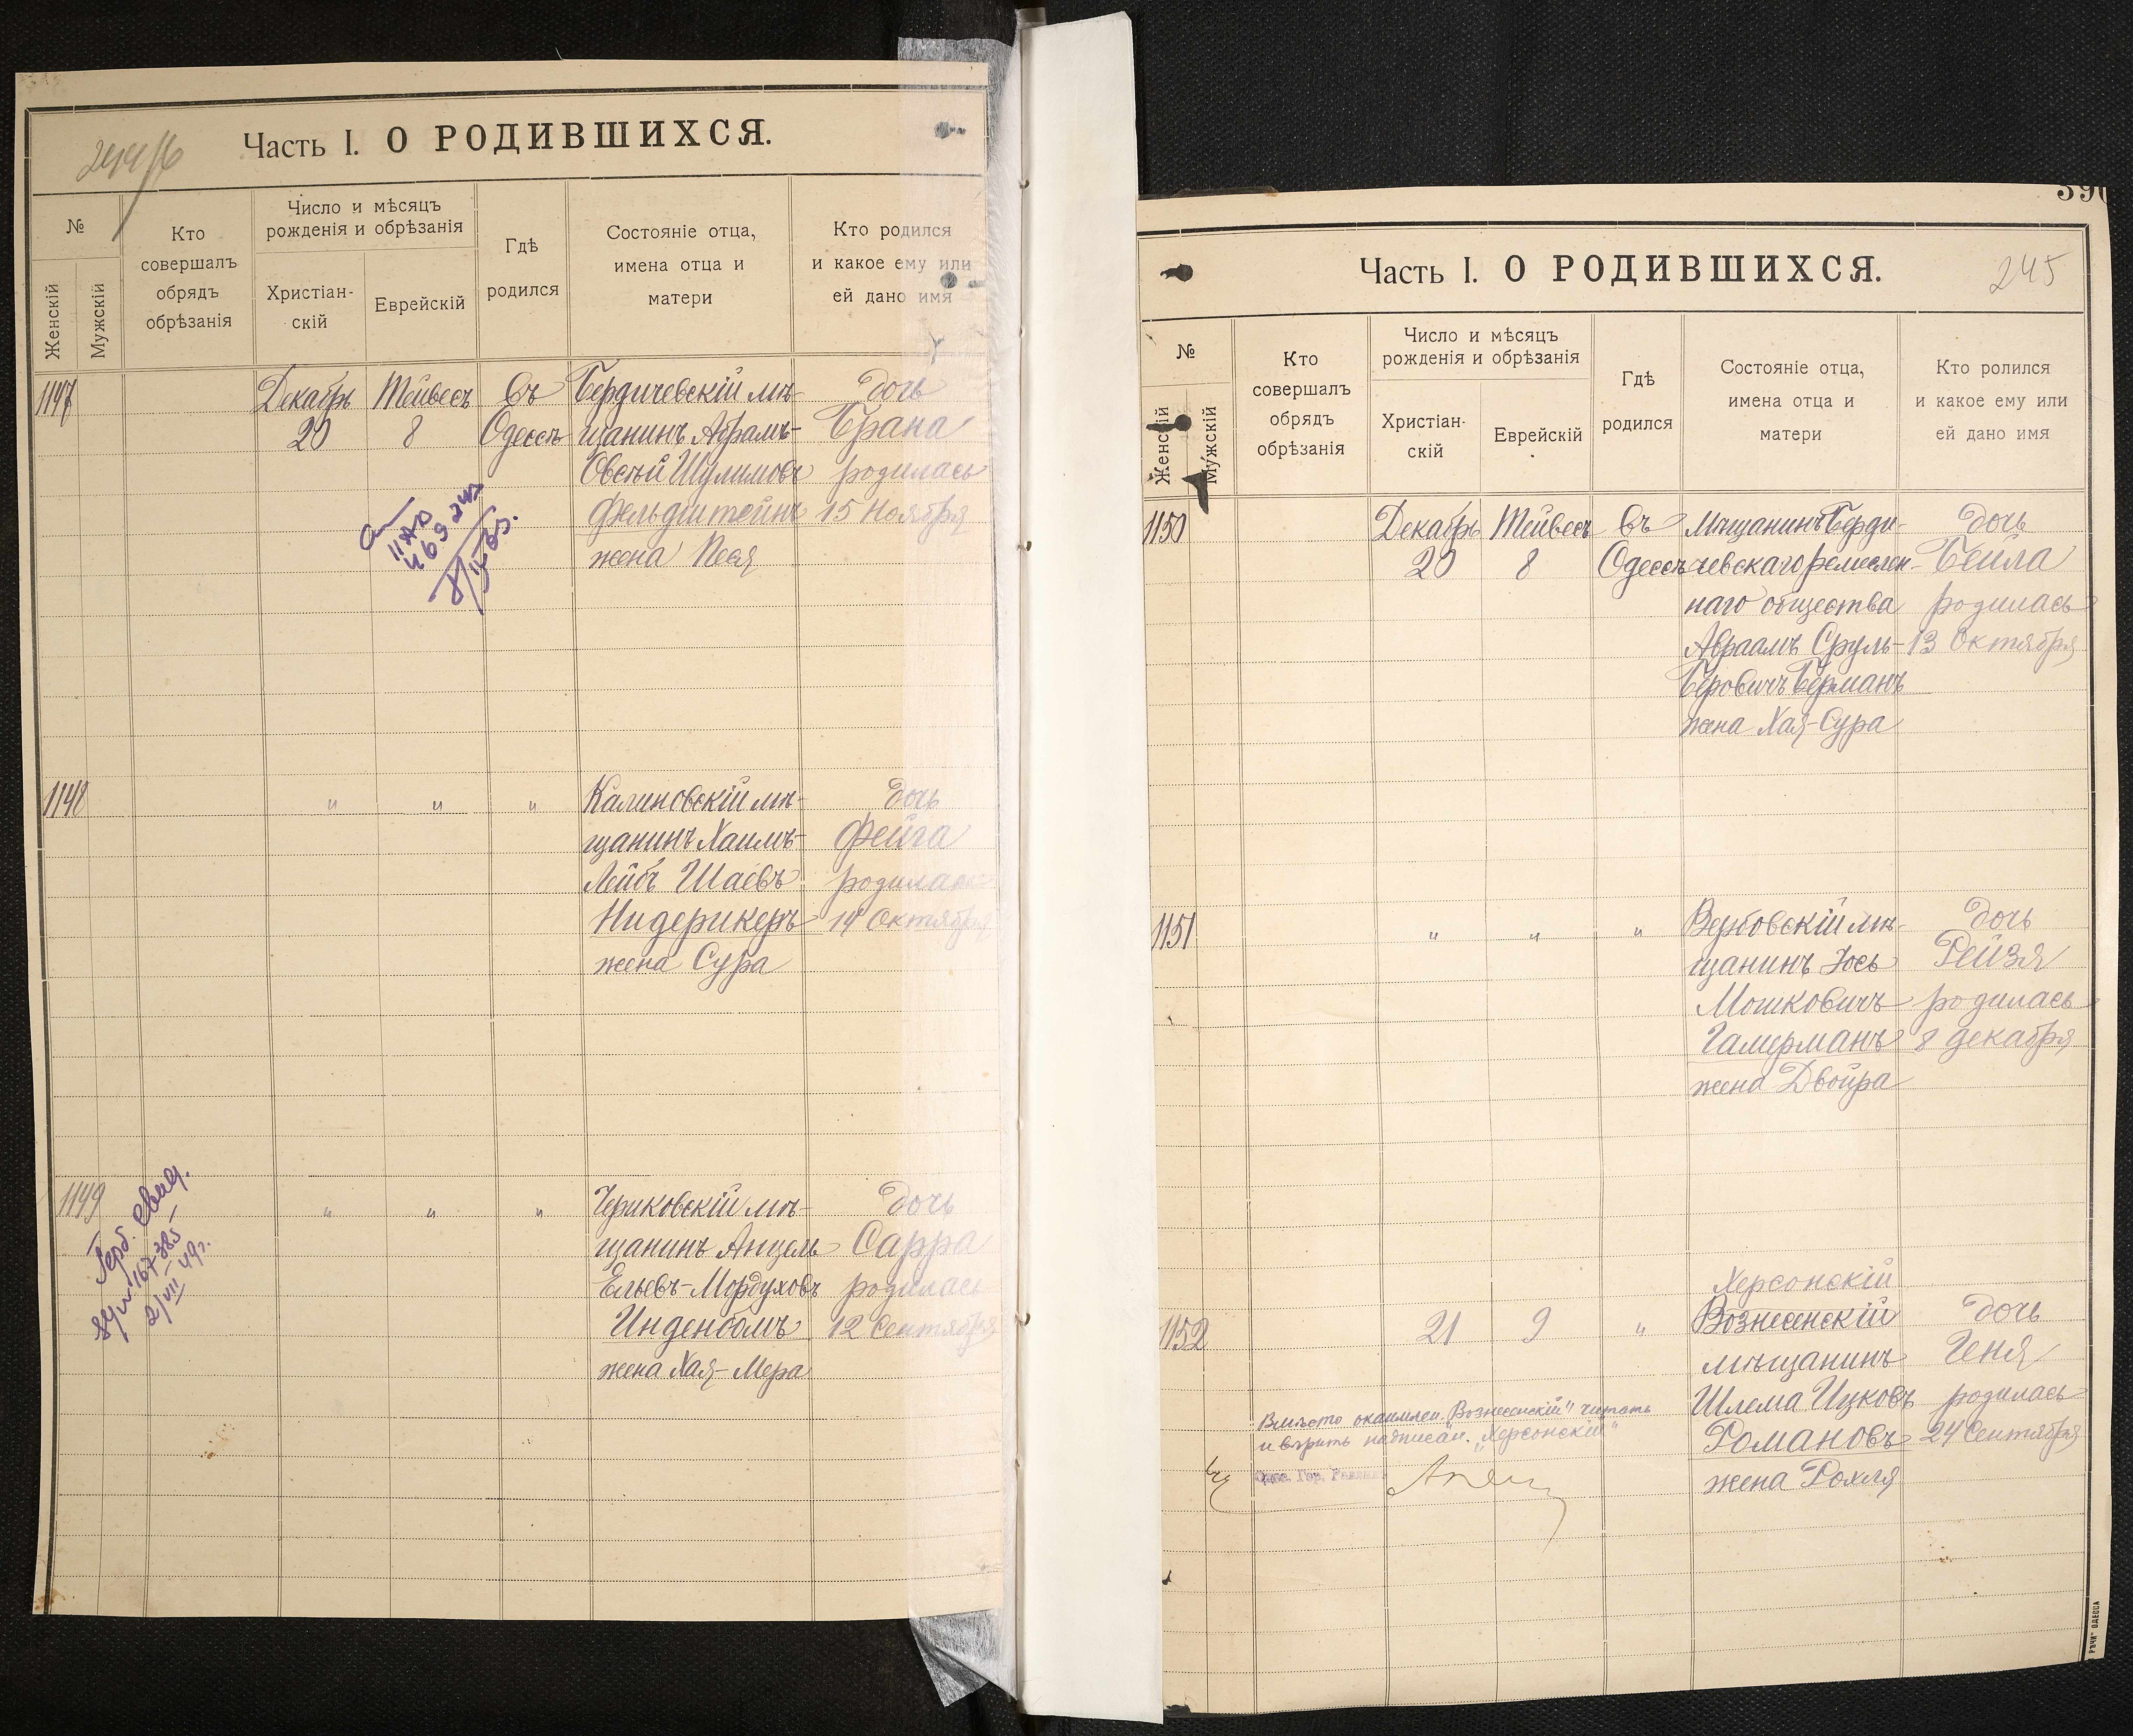 Часть I. О РОДИВШИХСЯ.
№
Женскій
Мужскій
Кто
совершалъ
обрядъ
обрѣзанія
Число и мѣсяцъ
рожденія и обрѣзанія
Христіан-
скій
Еврейскій
Гдѣ
родился
Состояніе отца,
имена отца и
матери
Кто родился
и какое ему или
ей дано имя
1147
Декабрь
20
Тейвесъ
8
Въ
Одессѣ
Бердичевскій мѣ-
щанинъ Абрамъ-
Овсѣй Шулимовъ
Фельдштейнъ
жена Песя
дочь
Брана
родилась
15 Ноября
1148
" " "
Калиновскій мѣ-
щанинъ Хаимъ-
Лейбъ Шаевъ
Нидерикеръ
жена Сура
дочь
Фейга
родилась
14 Октября
1149
Герб. свид.
2/VII 49 г.
" " "
Чериковскій мѣ-
щанинъ Анцель
Ельевъ-Мордуховъ
Инденбомъ
жена Хая-Мера
дочь
Сарра
родилась
12 Сентября
Часть I. О РОДИВШИХСЯ.
245
№
Женскій
Мужскій
Кто
совершалъ
обрядъ
обрѣзанія
Число и мѣсяцъ
рожденія и обрѣзанія
Христіан-
скій
Еврейскій
Гдѣ
родился
Состояніе отца,
имена отца и
матери
Кто ролился
и какое ему или
ей дано имя
1150
Декабрь
20
Тейвесъ
8
Въ
Одессѣ
Мѣщанинъ Берди-
чевскаго ремеслен-
наго общества
Авраамъ Сруль-
Беровичъ Берманъ
жена Хая-Сура
дочь
Бейла
родилась
13 Октября
1151
" " "
Вербовскій мѣ-
щанинъ Іось
Мошковичъ
Гамерманъ
жена Двойра
дочь
Рейзя
родилась
8 декабря
1152
21
9
"
Херсонскій
Вознесенскій
мѣщанинъ
Шлема Ицковъ
Романовъ
жена Рохля
дочь
Геня
родилась
24 Сентября
Вмѣсто окаймлен. "Вознесенскій" читать
и вѣрить надписан. "Херсонскій"
Одес. Гор. Раввинъ
РѢЧИ" ОДЕССА